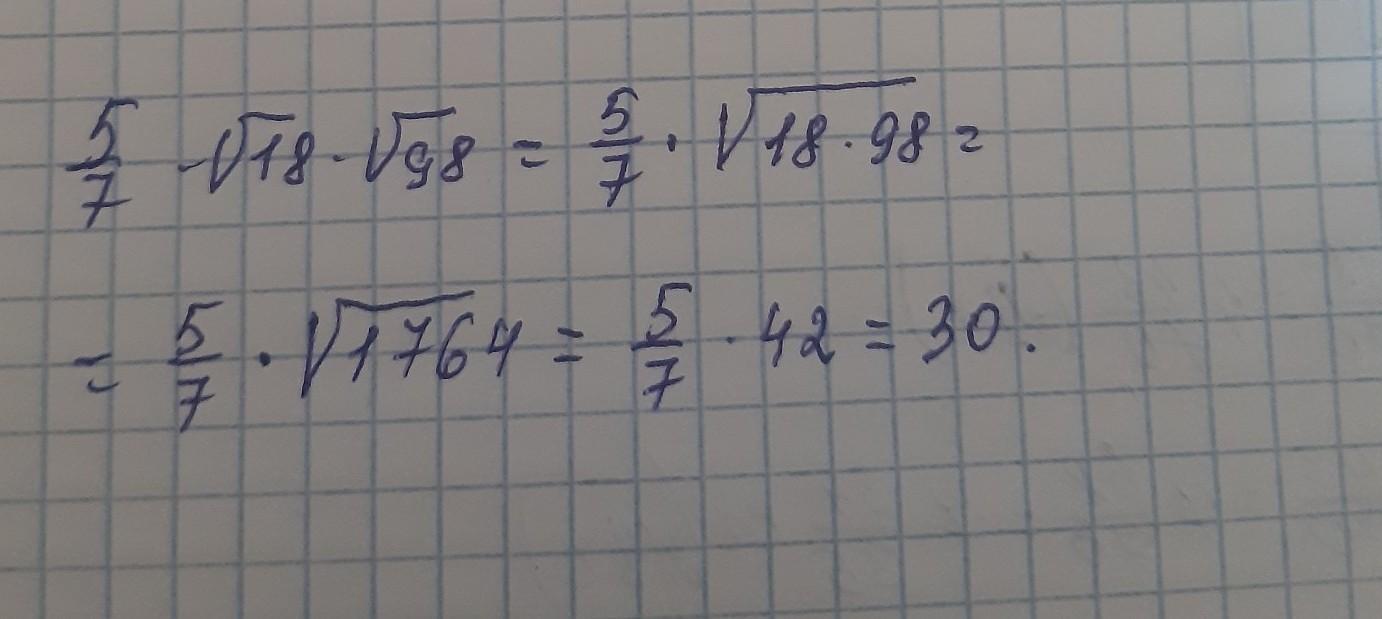 5/7 · √18 · √98 = 5/7 · √(18 · 98) =
= 5/7 · √1764 = 5/7 · 42 = 30.